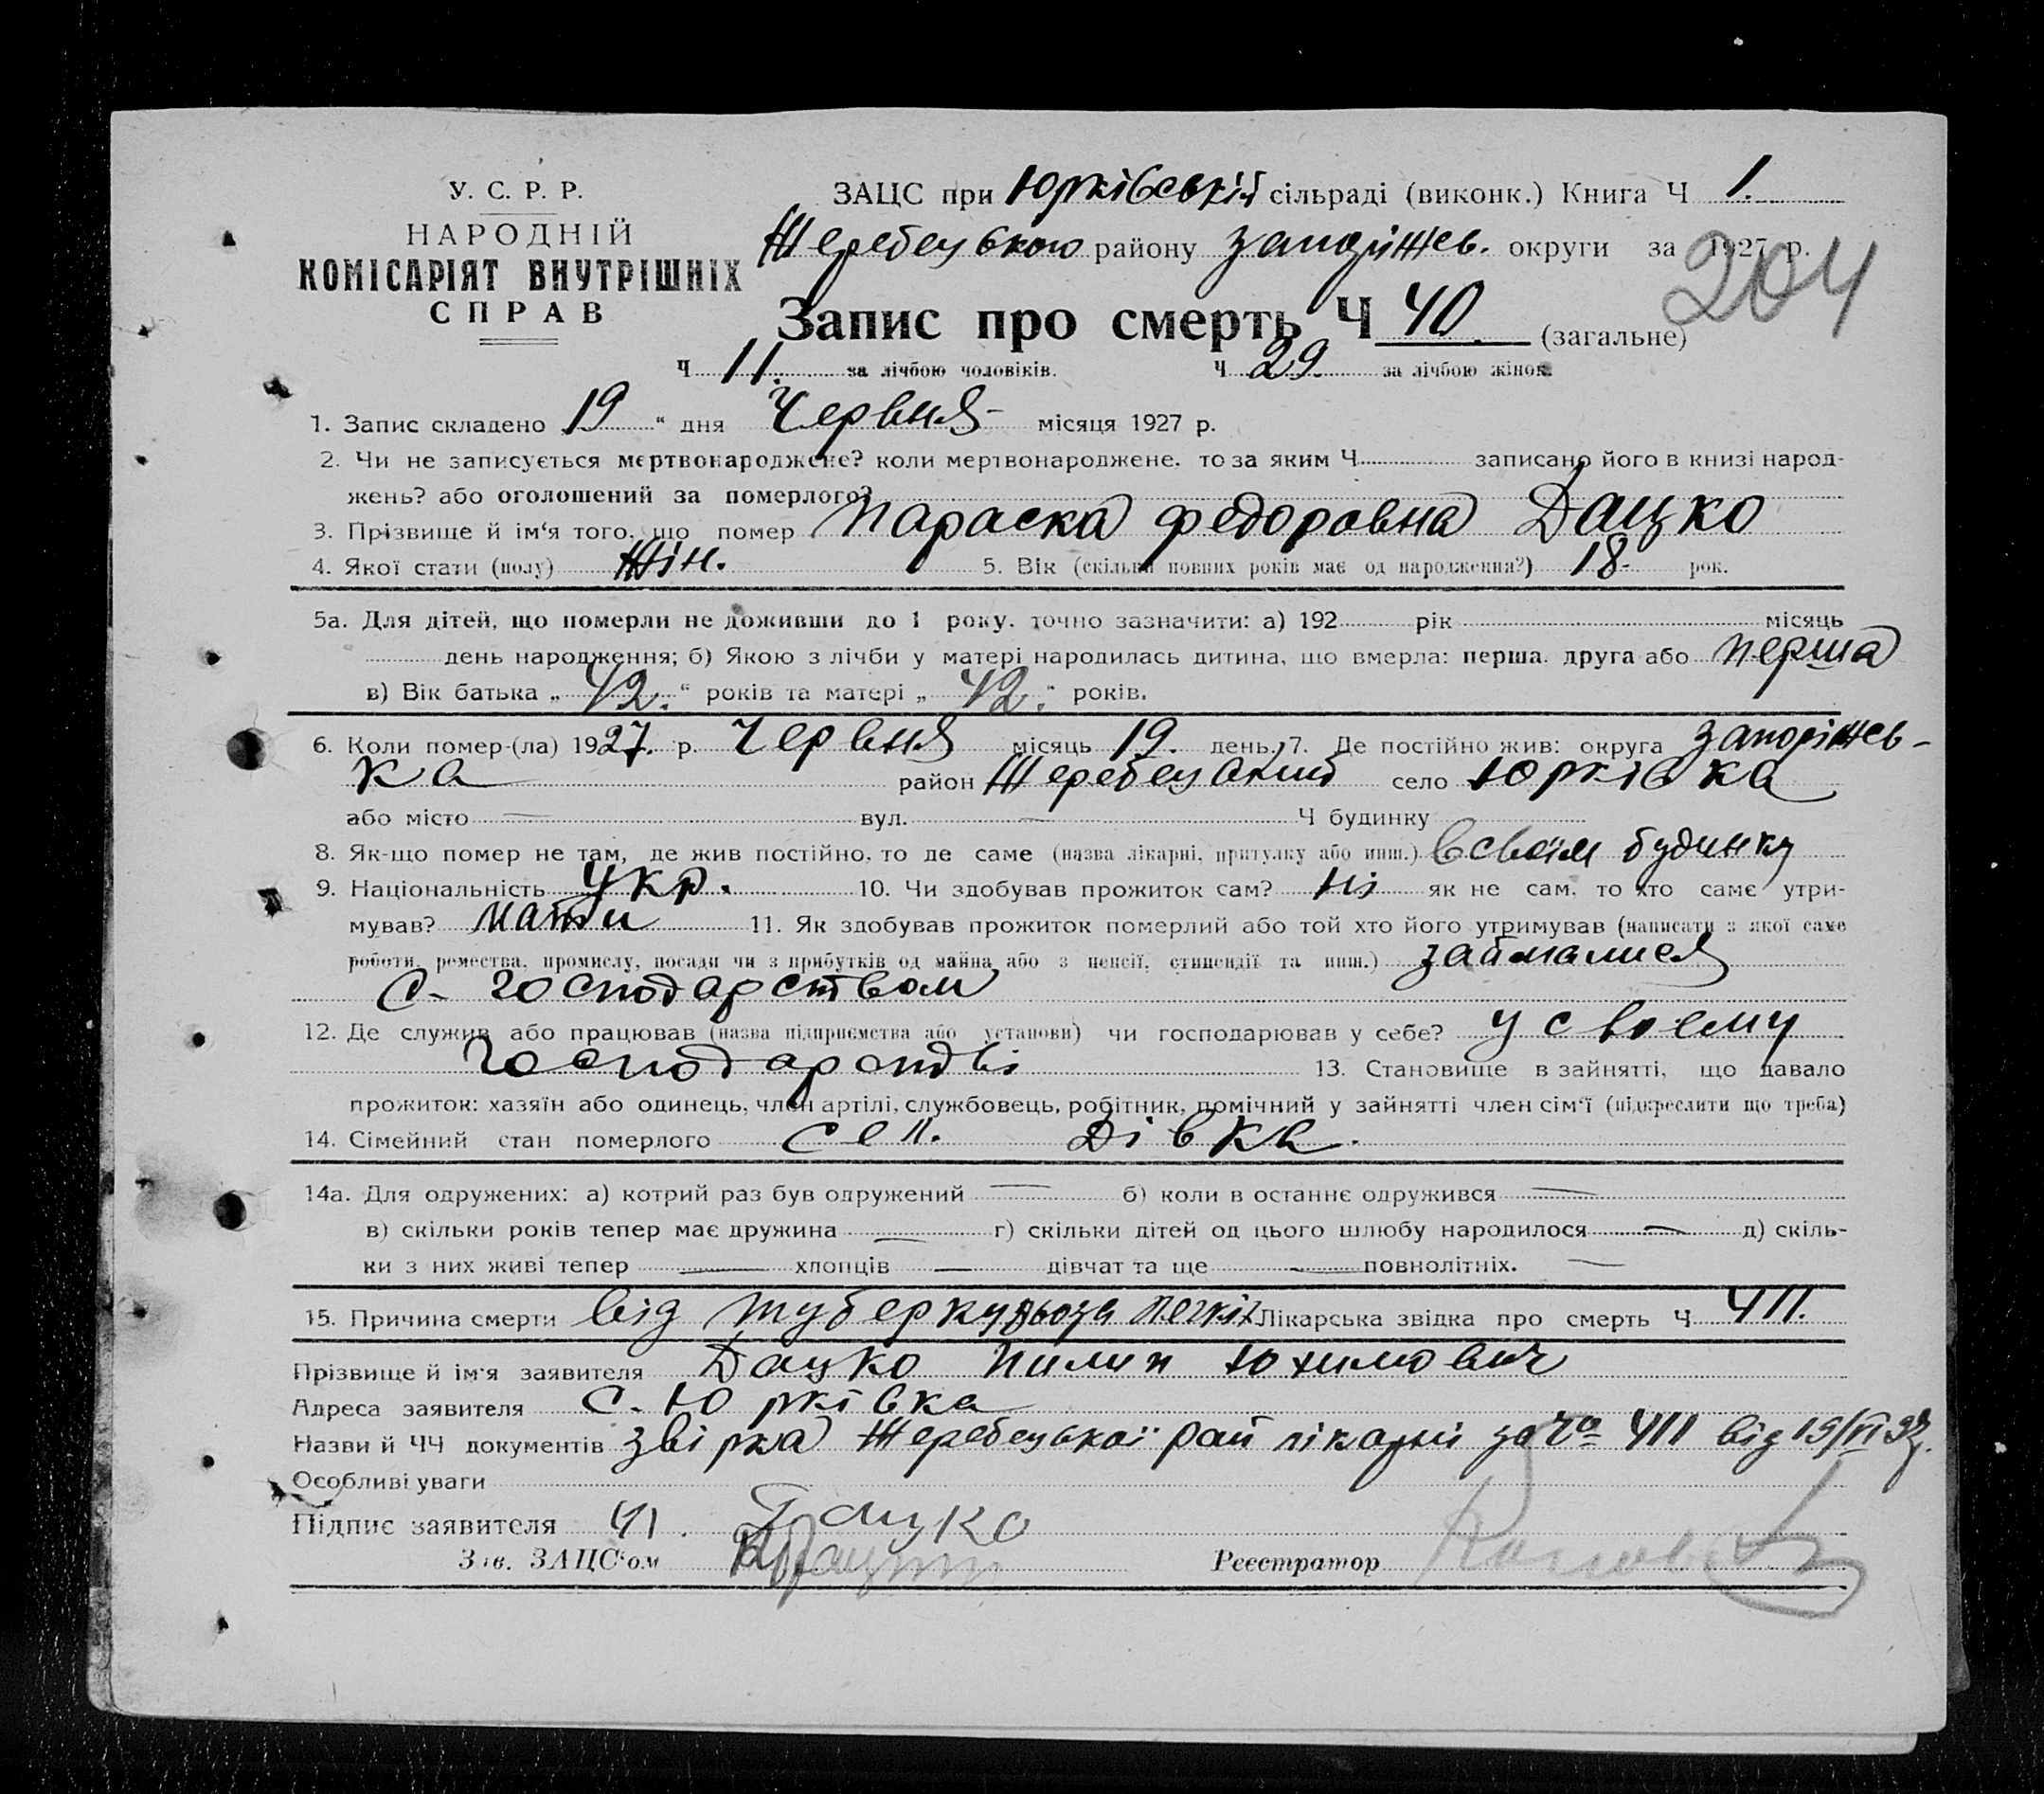 У. С. Р. Р.
НАРОДНІЙ
КОМІСАРІЯТ ВНУТРІШНІХ
СПРАВ
ЗАЦС при Юрківській сільраді (виконк.) Книга Ч 1.
Жеребецького району Запоріжев. округи за 1927 р.
204
Запис про смерть Ч 40 (загальне)
Ч 11. за лічбою чоловіків. Ч 29. за лічбою жінок
1. Запис складено 19 " дня Червня місяця 1927 р.
2. Чи не записується мертвонароджене? коли мертвонароджене. то за яким Ч записано його в книзі народ-
жень? або оголошений за померлого?
3. Прізвище й ім'я того, що помер Параска Федоровна Дацко
4. Якої стати (полу) Жін. 5. Вік (скільки повних років має од народження?) 18. рок.
5а. Для дітей, що померли не доживши до 1 року. точно зазначити: а) 192 рік місяць
день народження; б) Якою з лічби у матері народилась дитина, що вмерла: перша. друга або перша
в) Вік батька „ 42. " років та матері „ 42. " років.
6. Коли помер-(ла) 1927. р. Червня місяць 19. день. 7. Де постійно жив: округа Запоріжев-
ка район Жеребецький село Юрківка
або місто — вул. — Ч будинку
8. Як-що помер не там, де жив постійно, то де саме (назва лікарні, притулку або инш.) в своїм будинку
9. Національність Укр. 10. Чи здобував прожиток сам? ні як не сам, то хто саме утри-
мував? мати 11. Як здобував прожиток померлий або той хто його утримував (написати з якої саме
роботи, ремества, промислу, посади чи з прибутків од майна або з пенсії, стипендії та инш.) займалися
С- господарством
12. Де служив або працював (назва підприємства або установи) чи господарював у себе? у своєму
господарстві 13. Становище в зайнятті, що давало
прожиток: хазяїн або одинець, член артілі, службовець, робітник, помічний у зайнятті член сім'ї (підкреслити що треба)
14. Сімейний стан померлого сел. дівка.
14а. Для одружених: а) котрий раз був одружений — б) коли в останнє одружився —
в) скільки років тепер має дружина — г) скільки дітей од цього шлюбу народилося — д) скіль-
ки з них живі тепер — хлопців — дівчат та ще — повнолітніх. —
15. Причина смерти від туберкульоза легкіх Лікарська звідка про смерть Ч 411.
Прізвище й ім'я заявителя Дацко Пилип Юхимович
Адреса заявителя С. Юрківка
Назви й ЧЧ документів звірка Жеребецької рай лікарні за Ч 411 від 19/VI 27.
Особливі уваги
Підпис заявителя Дацко
Зав. ЗАЦС'ом
Реєстратор